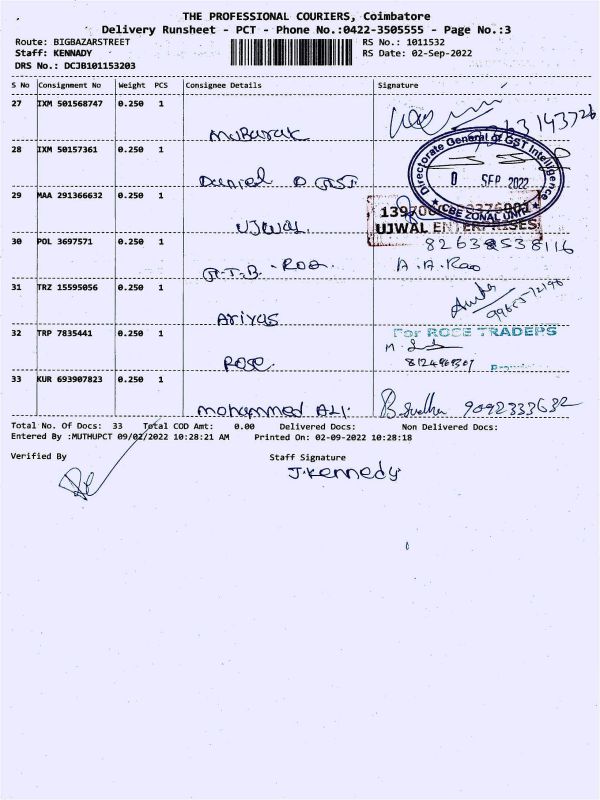 THE PROFESSIONAL COURIERS, Coimbatore
Delivery Runsheet - PCT - Phone No.:0422-3505555 - Page No.:3
Route: BIGBAZARSTREET
RS No.: 1011532
Staff: KENNADY
RS Date: 02-Sep-2022
DRS No.: DCJB101153203
S No Consignment No Weight PCS Consignee Details Signature
27 IXM 501568747 0.250 1
Mubarak
28 IXM 50157361 0.250 1
Daniel D GST
Directorate General of GST Intelligence
0 SEP 2022
CBE ZONAL UNIT
29 MAA 291366632 0.250 1
UJWAL
UJWAL ENTERPRISES
30 POL 3697571 0.250 1
A.A. Rao
31 TRZ 15595056 0.250 1
Ariyas
32 TRP 7835441 0.250 1
For ROSE TRADERS
Rose
33 KUR 693907823 0.250 1
Mohammed ALI
9092333632
Total No. Of Docs: 33 Total COD Amt: 0.00 Delivered Docs: Non Delivered Docs:
Entered By :MUTHUPCT 09/02/2022 10:28:21 AM Printed On: 02-09-2022 10:28:18
Verified By
Staff Signature
J.Kennedy